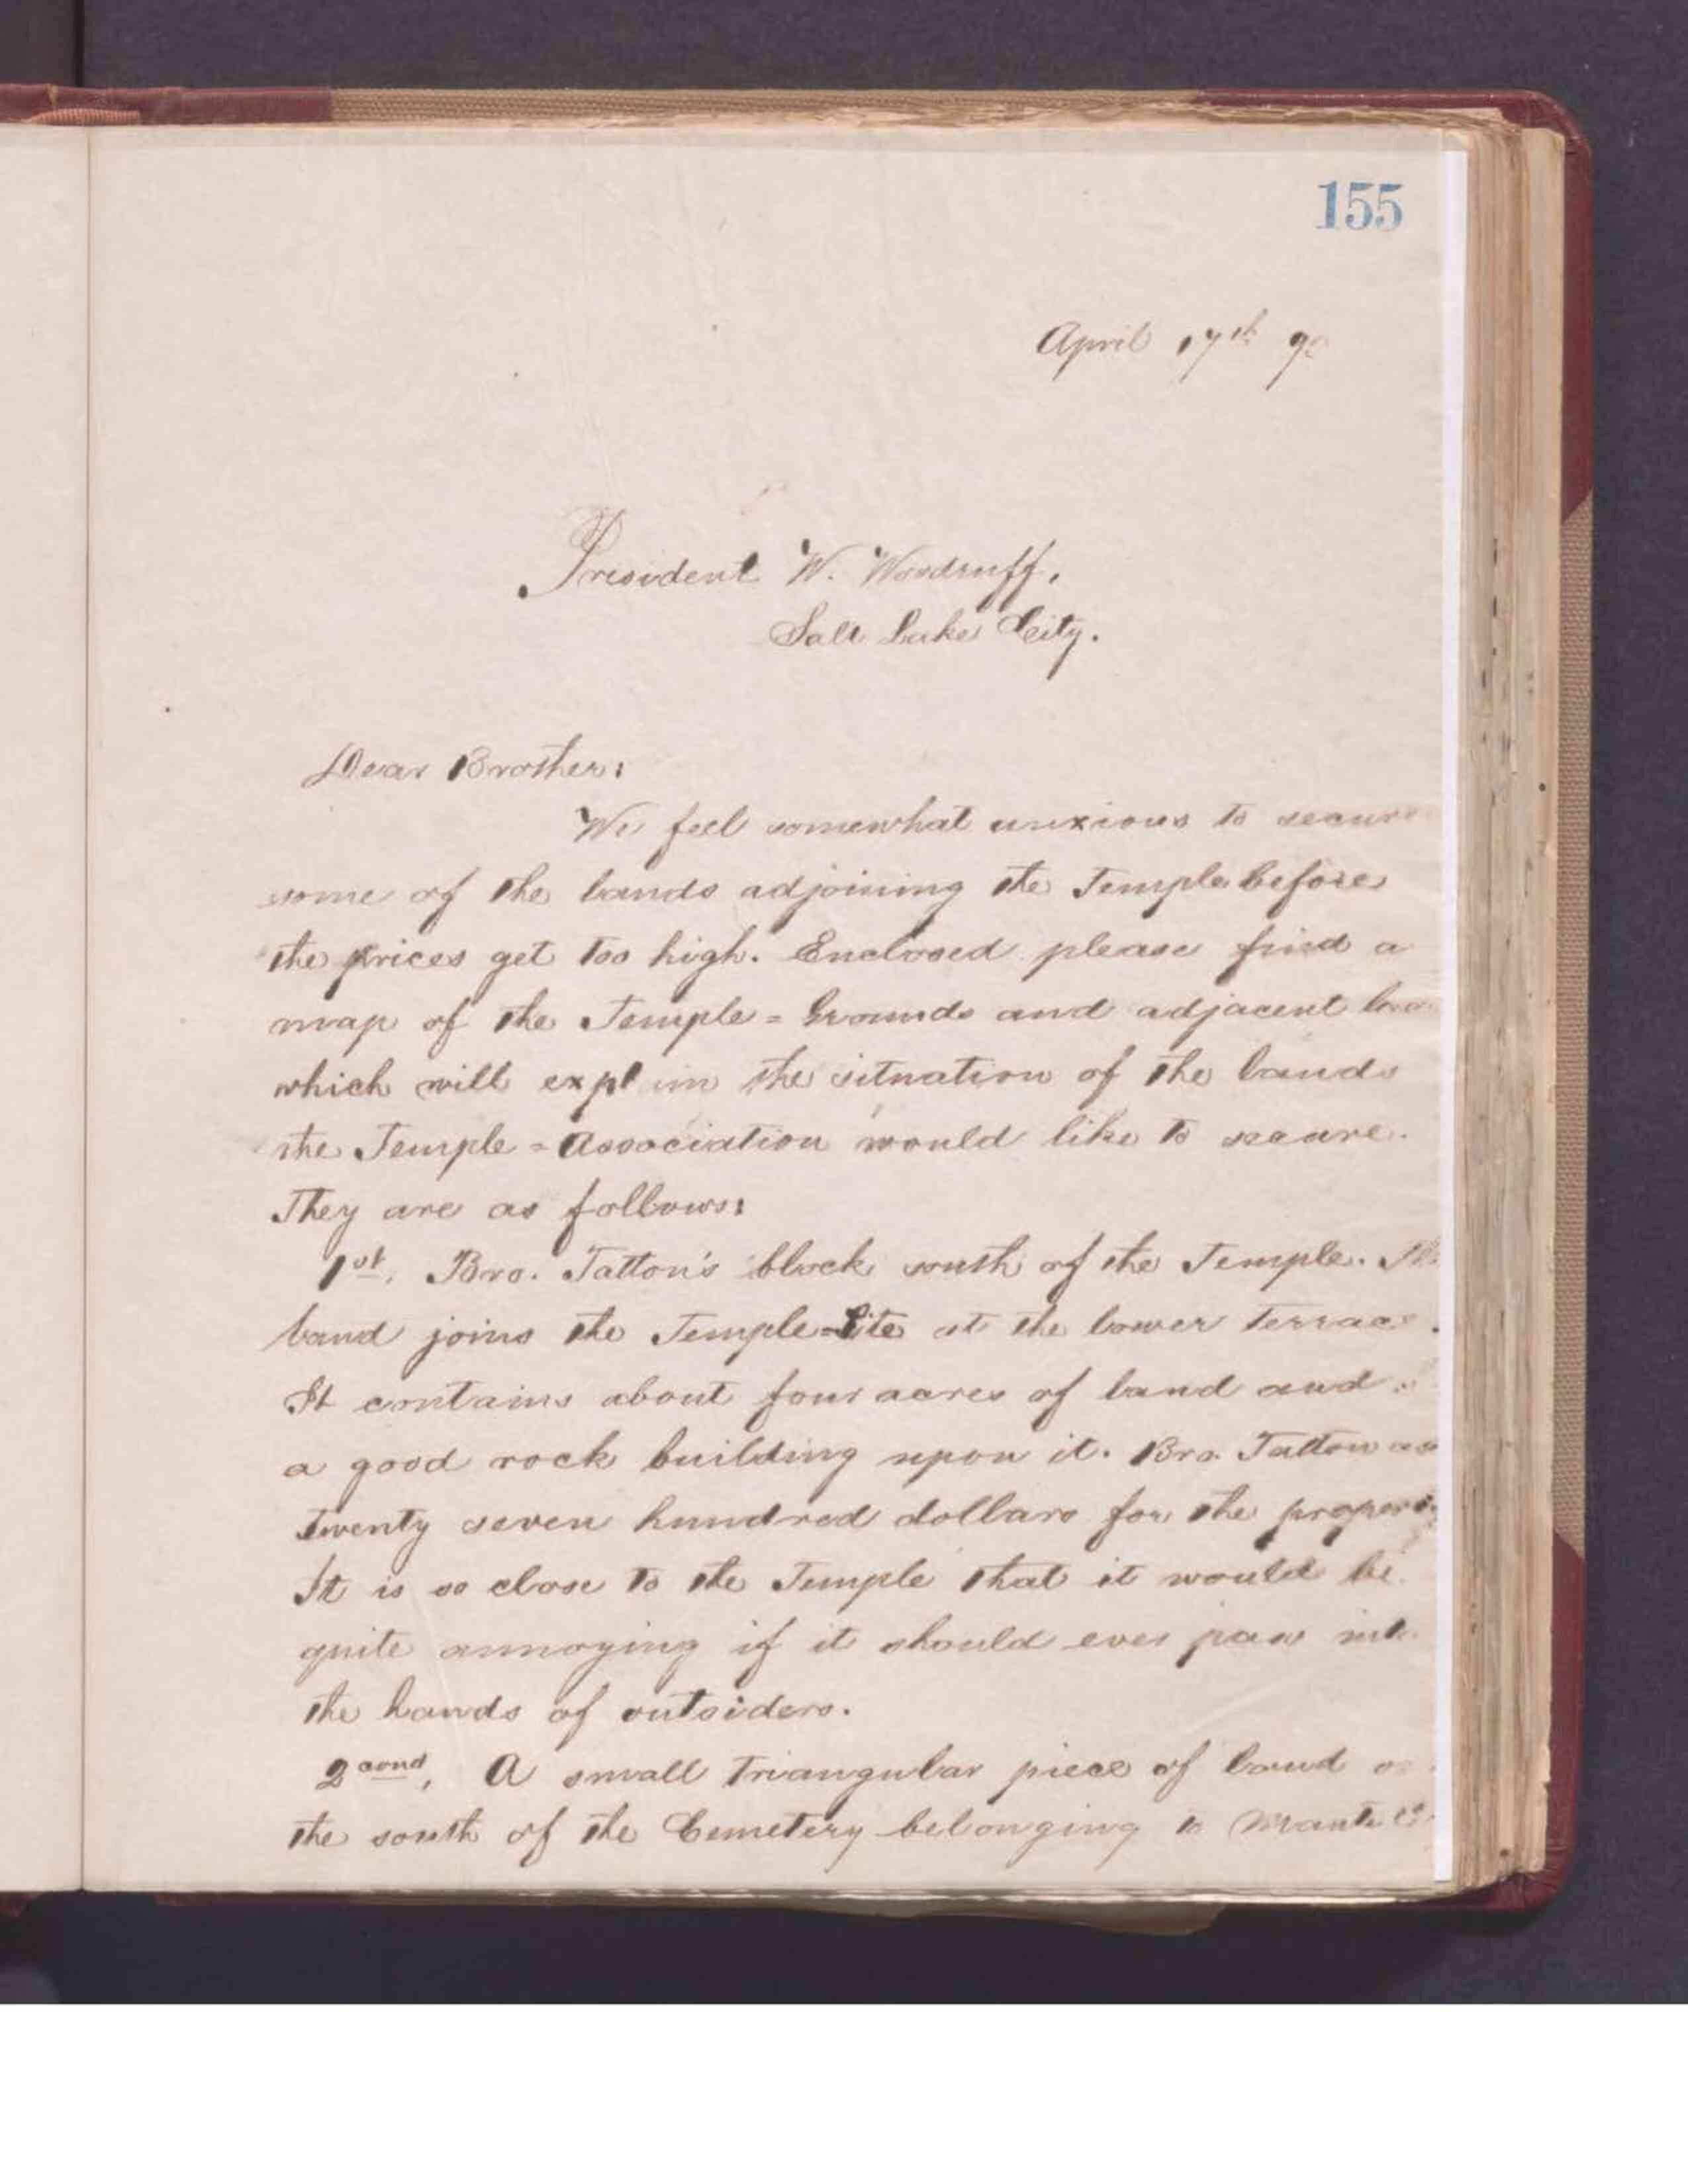 155
April 17th 90
President W. Woodruff,
Salt Lake City.
Dear Brother:
We feel somewhat anxious to secure
some of the lands adjoining the Temple before
the prices get too high. Enclosed please find a
map of the Temple = Grounds and adjacent
which will explain the situation of the lands
the Temple = Association would like to secure.
They are as follows:
1st. Bro. Tatton's block south of the Temple.
land joins the Temple=Site at the lower terrace.
It contains about four acres of land and
a good rock building upon it. Bro. Tatton as
twenty seven hundred dollars for the proper
It is so close to the Temple that it would be
quite annoying if it should ever pass into
the hands of outsiders.
2cond, A small triangular piece of land on
the south of the Cemetery belonging to Manti